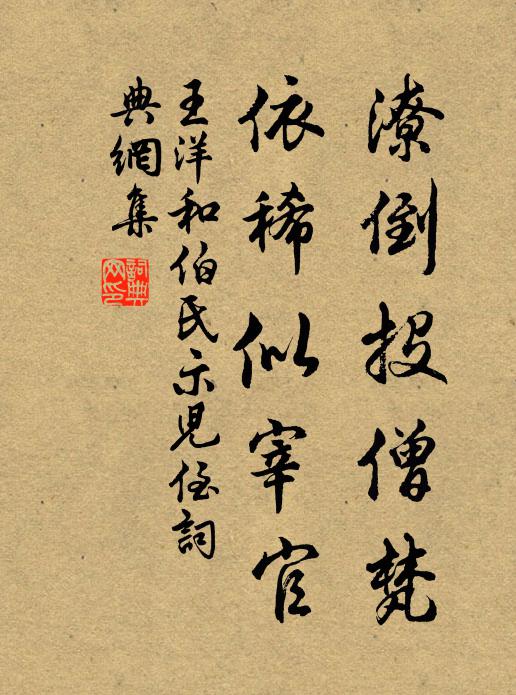 潦倒投僧梵
依稀似宰官
王洋和伯氏示兒侄詞
典網集
詞典
网印